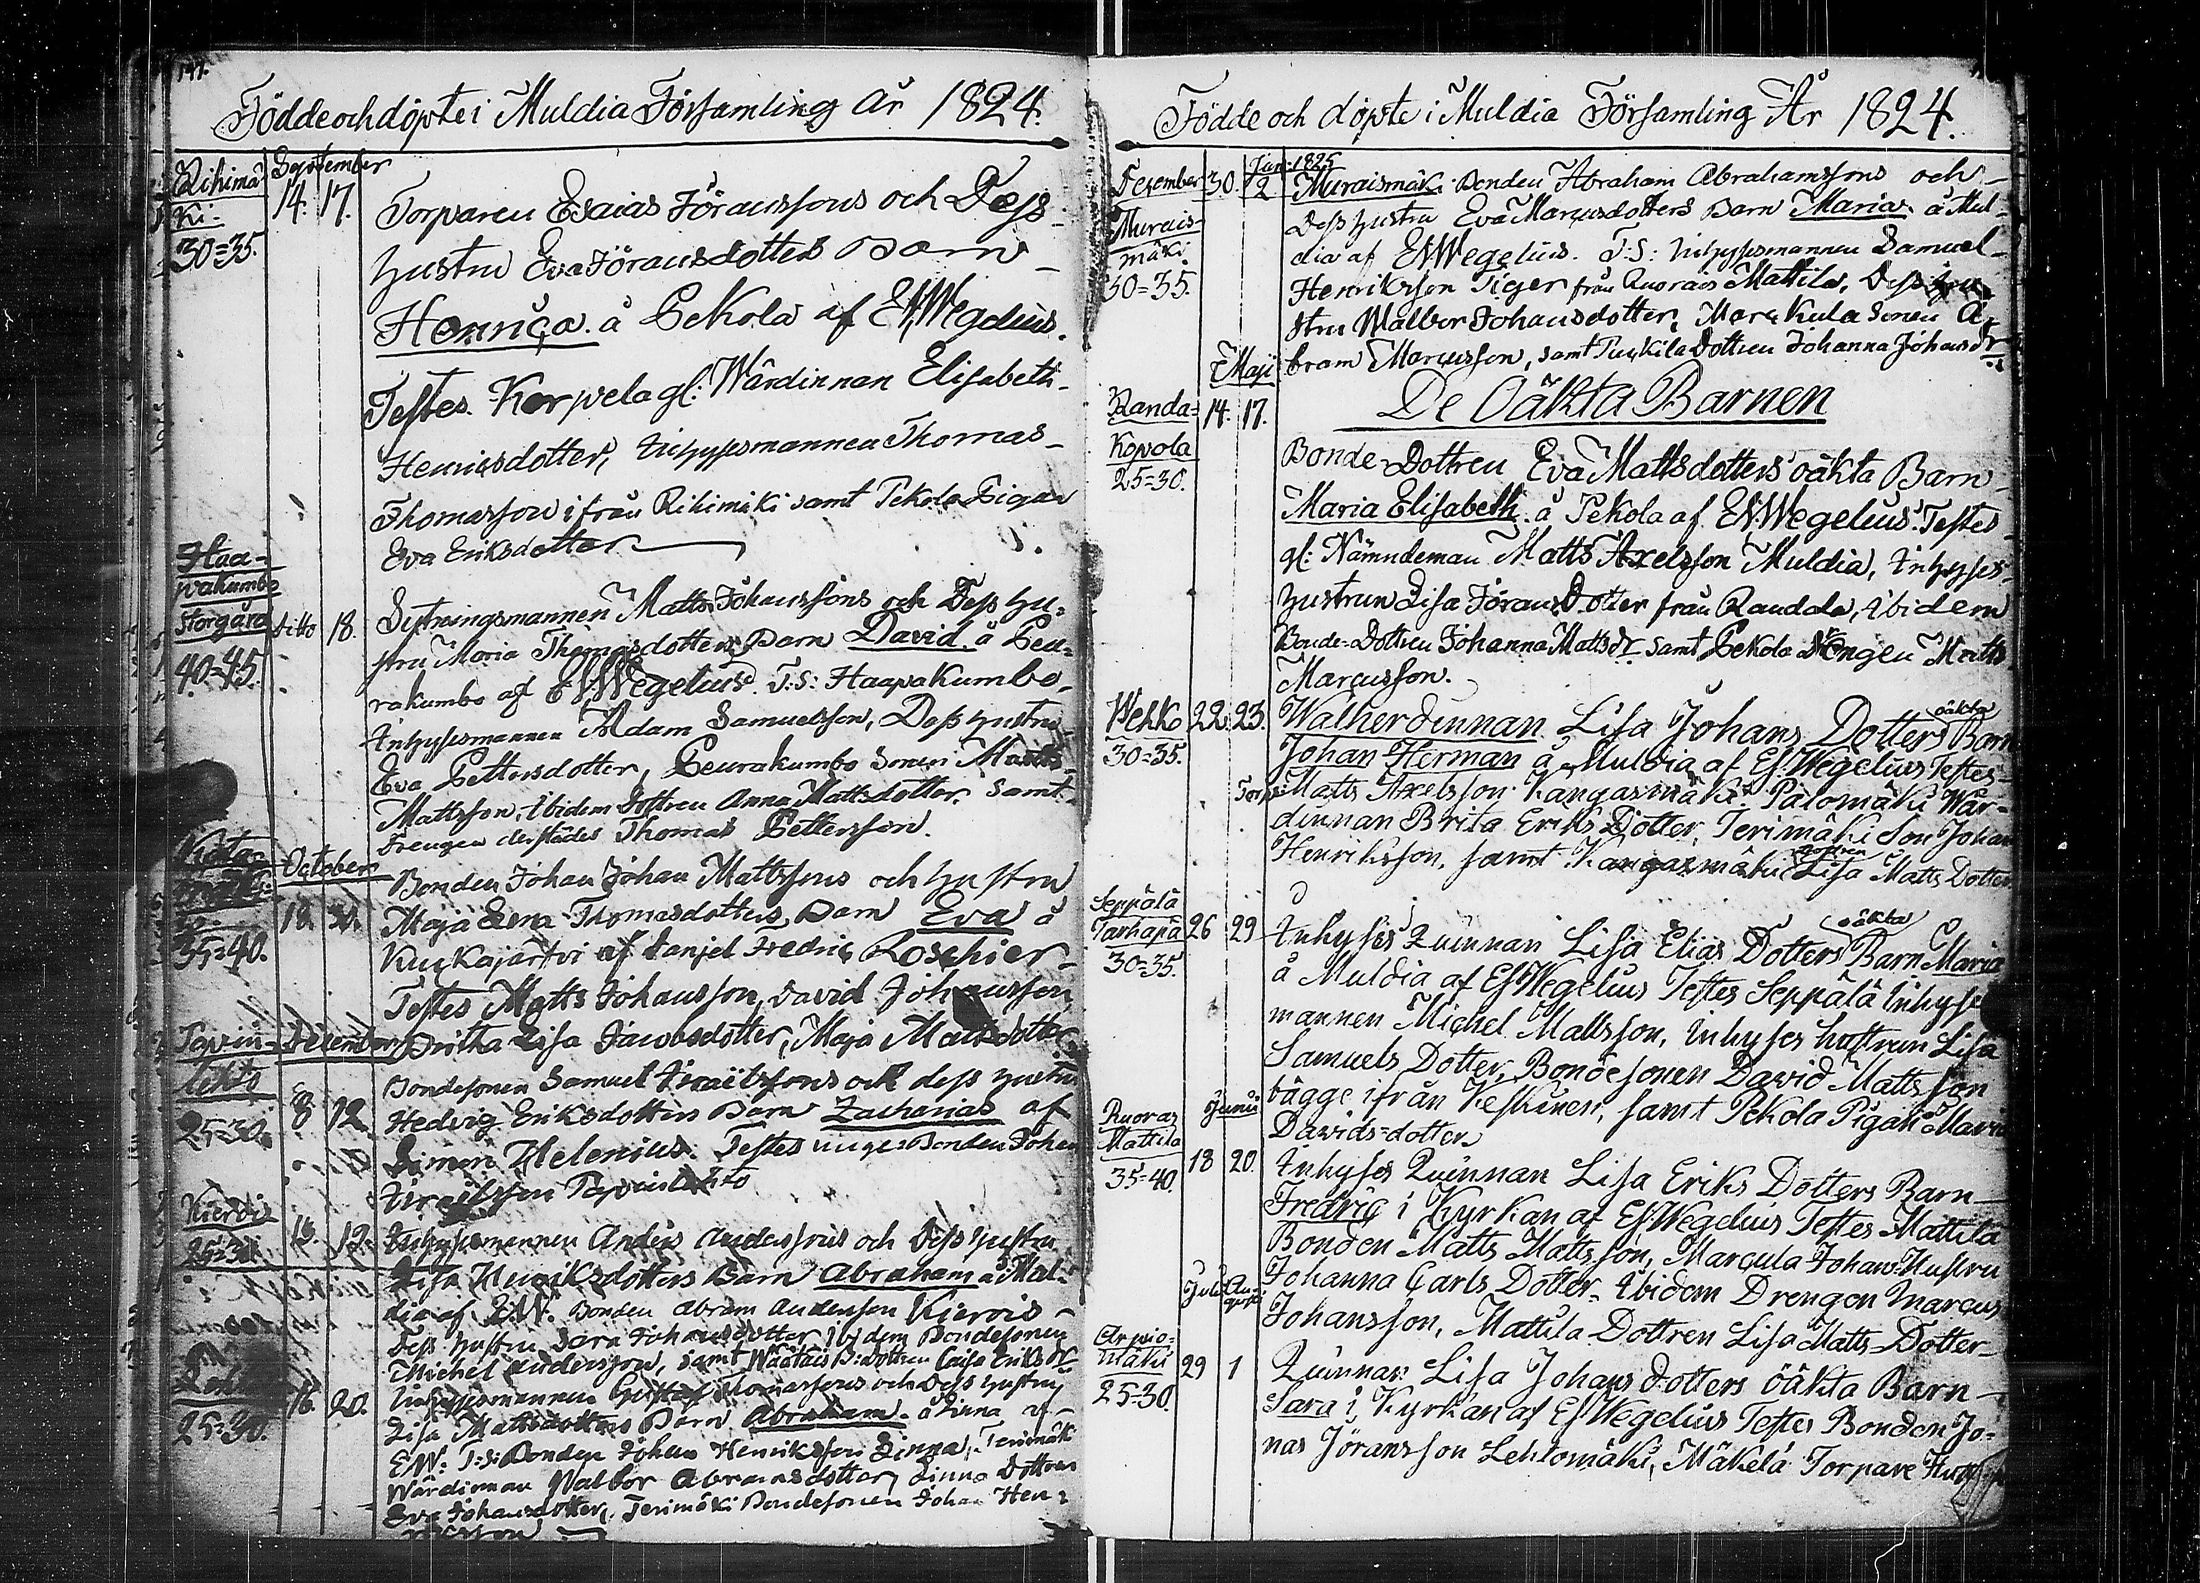 147.
Födde och döpte i Muldia Församling År 1824.
September
Rihimä-
ki.
30=35.
14. 17.
Torparen Esaias Jöranssons och Dess
hustru Eva Joransdotters Barn
Henrica. å Pekola af E.W.Wegelius.
Testes. Korpela gl: Wärdinnan Elisabeth
Henricsdotter, Inhysesmannen Thomas
Thomasson ifrån Rihimäki samt Pekola Pigan
Eva Eriksdotter
Haa-
pakumbo
Storgård
40=45.
ditto 18.
Sytningsmannen Matts Johanssons och Dess hu-
stru Maria Thomasdotters Barn David. å Peu-
rakumbo af E.W.Wegelius. T:S: Haapakumbo
Inhysesmannen Adam Samuelsson, Dess hustru
Eva Pettersdotter, Peurakumbo Sonen Matts
Mattsson, Ibidem Dottren Anna Mattsdotter. Samt
Drengen derstädes Thomas Pettersson.
October
35=40.
18. 30.
Bonden Johan Johan Mattssons och hustru
Maja Lena Thomasdotters Barn Eva å
Kuckajärvi af Danjel Fredric Roschier
Testes Matts Johansson, David Johansson,
Britha Lisa Jacobsdotter, Maja Mattsdotter
December
Tapini-
lehto
25=30.
8 12.
Bondesonen Samuel Israëlssons och dess hustru
Hedvig Eriksdotters Barn Zacharias af
Simon Helenius. Testes unges Bonden Johan
Israëlsson Tapinilehto
Kierois
25=30.
16. 19.
Inhysesmannen Anders Anderssons och Dess hustru
Lisa Henriksdotters Barn Abraham å Mul-
dia af E.W: Bonden Abram Andersson Kierois
Dess hustru Sara Johansdotter, ibidem Bondesonen
Michel Andersson, samt B:dottren Caisa Eriksdr
25=30.
16. 20.
Inhysesmannen Gustaf Thomassons och Dess hustru
Lisa Mattsdotters Barn Abraham. å Linna af
E.W: T:S: Bonden Johan Henriksson Linna, Terimäki
Wärdinnan Walbor Abramsdotter, Linna Dottren
Eva Johansdotter, Terimäki Bondesonen Johan Hen-
ricsson
Födde och döpte i Muldia Församling År 1824.
Jan: 1825
December 30. 2
Murais-
mäki.
30=35.
Muraismäki Bonden Abraham Abrahamssons och
Dess hustru Eva Marcusdotters Barn Maria. å Mul-
dia af E.W.Wegelius. T:S: Inhysesmannen Samuel
Henriksson Tiger från Ruoras Mattila, Dess hu-
stru Walbor Johansdotter, Marckula Sonen A-
bram Marcusson, samt Puckila Dottren Johanna Johansdr
De Oäkta Barnen
Maji
Randa-
Kopola
25=30.
14. 17.
Bonde-Dottren Eva Mattsdotters oäkta Barn
Maria Elisabeth. å Pekola af E.W.Wegelius. Testes
gl: Nämndeman Matts Axelsson Muldia, Inhyses
hustrun Lisa Jörans Dotter från Randala, Ibidem
Bonde-Dottren Johanna Mattsdr samt Pekola Drengen Matts
Marcusson.
Wehko
30=35.
22. 23.
Walherdinnan Lisa Johans Dotters oäkta Barn
Johan Herman å Muldia af E.W.Wegelius Testes
Torp: Matts Axelsson Kangasmäki. Palomäki Wär-
dinnan Brita Eriks Dotter, Terimäki Son Johan
Henriksson, samt Kangasmäki dottren Lisa Matts Dotter
Seppälä
Tarhapä
30=35.
26 29
Inhyses Quinnan Lisa Elias Dotters oäkta Barn Maria
å Muldia af E.W.Wegelius Testes Seppälä Inhyses
mannen Michel Mattsson, Inhyses hustrun Lisa
Samuels Dotter, Bondesonen David Mattsson
bägge ifrån Keskinen, samt Pekola Pigan Maria
Davids-dotter
Junii
Ruoras
Mattila
35=40.
18 20.
Inhyses Quinnan Lisa Eriks Dotters Barn
Fredric i Kyrkan af E.W.Wegelius Testes Mattila
Bonden Matts Mattsson, Marcula Johans Hustru
Johanna Carls Dotter. Ibidem Drengen Marcus
Johansson, Mattila Dottren Lisa Matts-Dotter
Julii Augusti
Arpio-
mäki
25=30.
29 1
Quinnan Lisa Johans dotters öäkta Barn
Sara i Kyrkan af E.W.Wegelius Testes Bonden Jo-
nas Jöransson Lehtomäki, Mäkelä Torpare